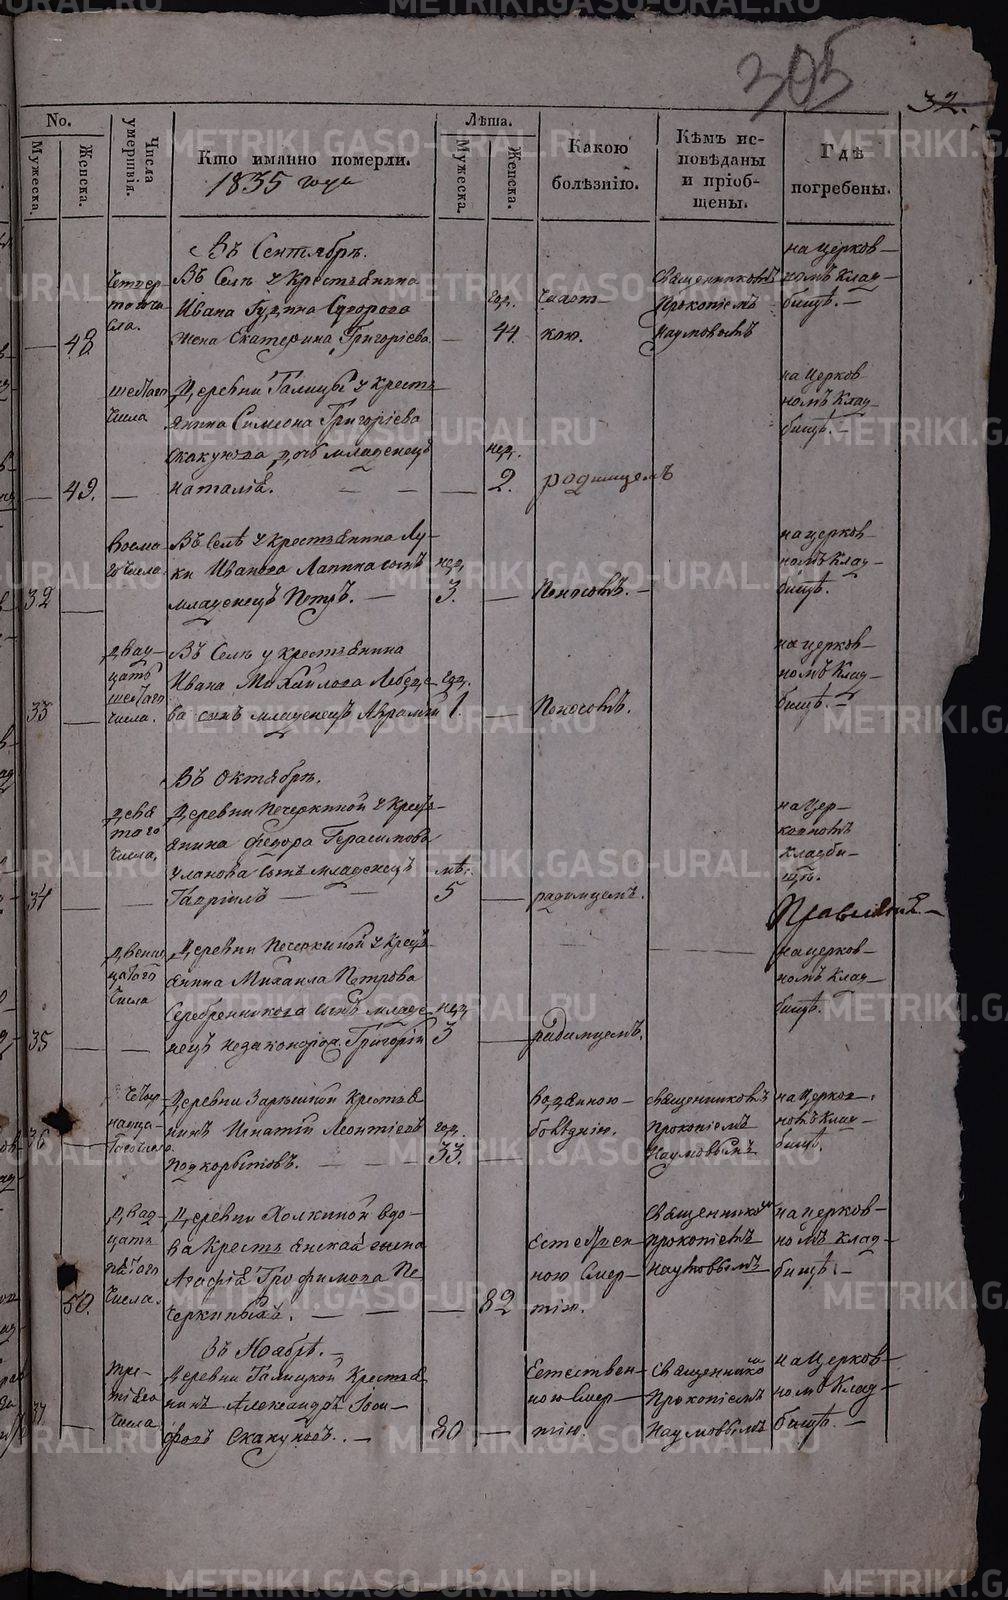 305
32.
No.
Мужеска.
Женска.
Числа умершия.
Кто имянно померли.
1835 года
Лѣта.
Мужеска.
Женска.
Какою
болѣзнію.
Кѣмъ ис-
повѣданы
и пріоб-
щены.
Гдѣ
погребены.
Въ Сентябрѣ.
48.
четвер-
таго чи-
сла.
Въ Селѣ у Крестьянина
Ивана
жена Екатерина Григоріева
год.
44.
чахот-
кою.
Священникомъ
Прокопіемъ
Наумовымъ
на церков-
номъ клад-
бищѣ.
49.
шестаго
числа
Деревни Галицы у кресть
янина Симеона Григоріева
Скакунова дочь младенецъ
Наталія.
нед.
2.
родимцемъ
на церков
номъ клад-
бищѣ.
32
восма-
го числа
Въ Селѣ у крестьянина Лу-
ки Иванова Лапина сынъ
младенецъ Петръ.
нед.
3.
Поносомъ.
на церков
номъ клад-
бищѣ.
33
двад-
цать
шестаго
числа.
Въ Селѣ у крестьянина
Ивана Михайлова Лебеде-
ва сынъ младенецъ Аврамій
год.
1.
Поносомъ.
на церков-
номъ клад-
бищѣ.
Въ Октябрѣ.
34
девя
таго
числа,
Деревни Печеркиной у крест-
янина Федора Герасимова
Уланова сынъ младенецъ
Гавріилъ
мѣ.
5
родимцемъ.
на цер-
ковномъ
кладби-
щѣ.
35
двенад
цатаго
числа
Деревни Печеркиной у крест-
янина Михаила Петрова
Серебренникова сынъ младе-
нецъ незаконорож. Григорій
нед.
3
родимцемъ.
на церков-
номъ клад-
бищѣ.
36
четыр
надца-
таго числа
Деревни Зарѣшной крестья
нинъ Игнатій Леонтіевъ
Подкорытовъ.
год.
33.
водянною
болѣзнію.
Священникомъ
Прокопіемъ
Наумовымъ
на церков.
номъ клад-
бищѣ.
50.
двад
цать
пятаго
числа.
Деревни Холкиной вдо-
ва крестьянская жена
Агафія Трофимова Пе
черкиныха.
82
Естествен
ною смер-
тію.
Священникомъ
Прокопіемъ
Наумовымъ
на церков-
номъ клад-
бищѣ.
въ Ноябрѣ.
37
тре-
тіяго
числа
Деревни Галицкой Крестья
нинъ Александръ Іоси-
фовъ Скакуновъ.
80
Естествен-
ною смер-
тію.
Священнико
Прокопіемъ
Наумовымъ
на церков-
номъ клад-
бищѣ.
METRIKI.GASO-URAL.RU